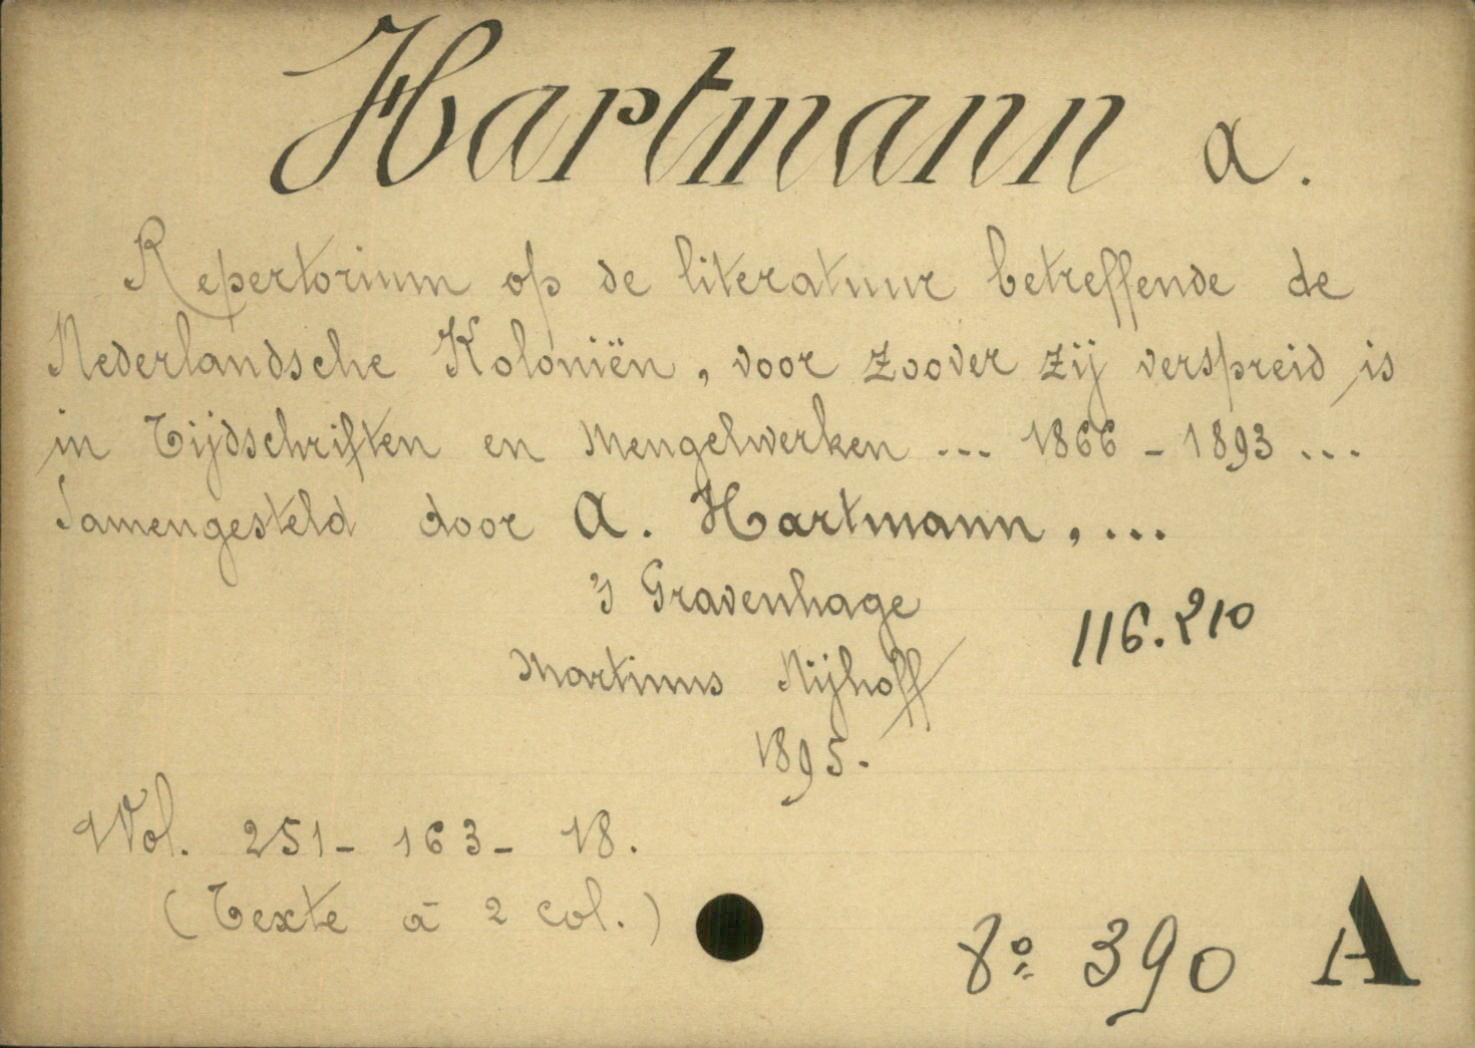 Hartmann A.
Repertorium op de literatuur betreffende de
Nederlandsche Koloniën, voor zoover zij verspreid is
in Tijdschriften en Mengelwerken ... 1866 - 1893 ...
Samengesteld door A. Hartmann, ...
's Gravenhage
116.210
Martinus Nijhoff
1895.
Vol. 251 - 163 - 18.
(Texte à 2 col.)
8º 390 A